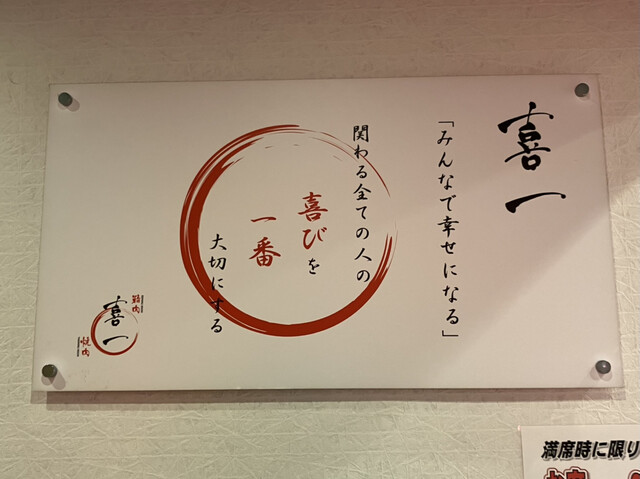 喜一
「みんなで幸せになる」
関わる全ての人の
喜びを
一番
大切にする
喜一
焼肉
満席時に限り